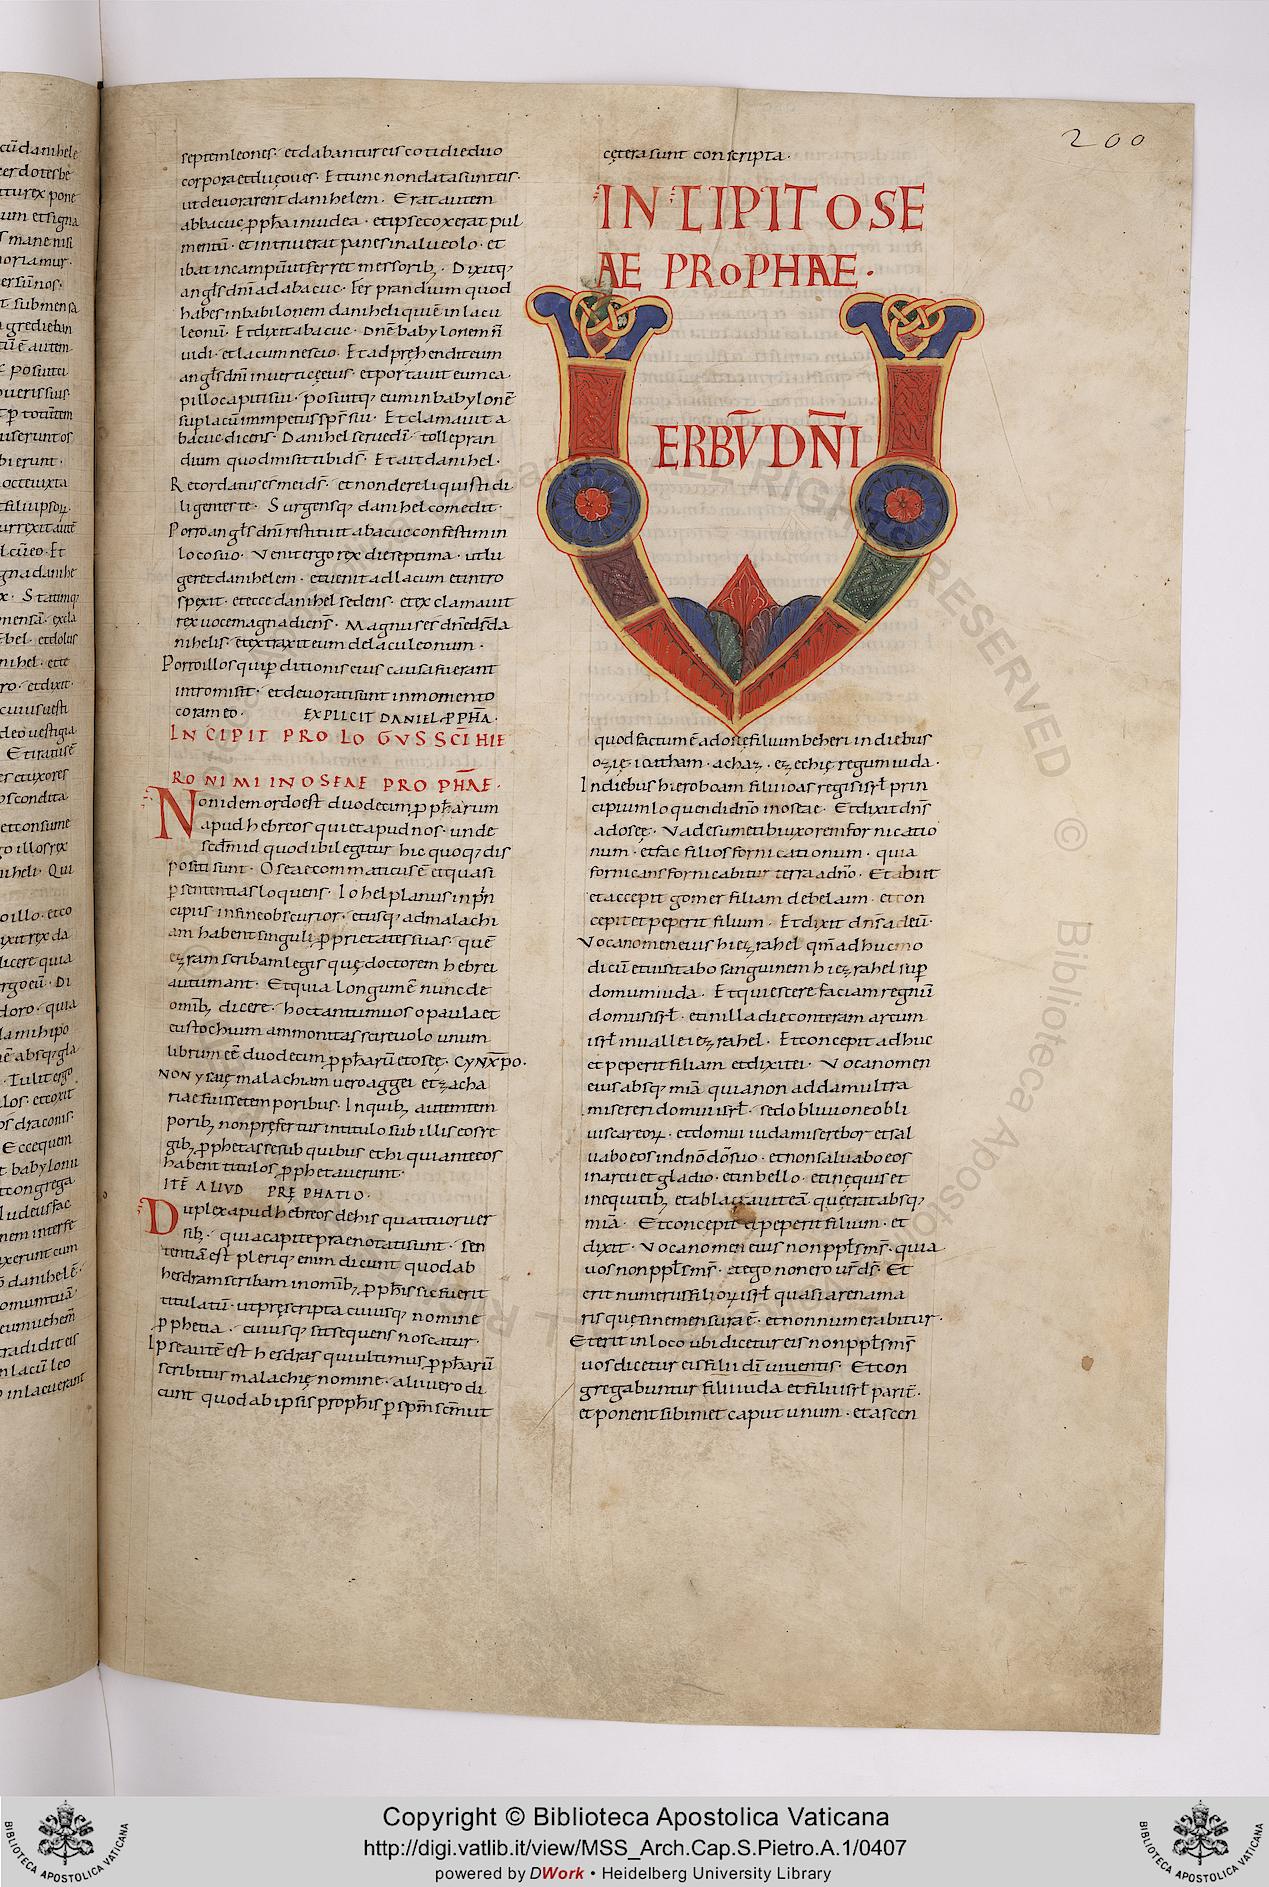 200
septem leones · et dabantur eis cotidie duo
corpora et duę oues · Et tunc non data sunt eis ·
ut deuorarent danihelem · Erat autem
abbacuc ꝓph̄a in iudea · et ipse coxerat pul
mentū · et intriuerat panes in alueolo · et
ibat in campū ut ferret messorib; · Dixitq;
angl̄s dn̄i ad abacuc · Fer prandium quod
habes in babilonem daniheli qui ē in lacu
leonū · Et dixit abacuc · Dn̄e babylonem n̄
uidi · et lacum nescio · Et adpręhendit eum
angl̄s dn̄i in uertice eius · et portauit eum ca
pillo capitis sui · posuitq; eum in babylonē
supra lacū in impetu sp̄s sui · Et clamauit a
bacuc dicens · Danihel serue dī · tolle pran
dium quod misit tibi dS̄ · Et ait danihel ·
Recordatus es mei ds̄ · et non dereliquisti di
ligentes te · Surgensq; danihel comedit ·
Porro angl̄s dn̄i restituit abacuc confestim in
loco suo · Venit ergo rex die septima · ut lu
geret danihelem · et uenit ad lacum et intro
spexit · et ecce danihel sedens · et exclamauit
rex uoce magna dicens · Magnus es dn̄e ds̄ da
nihelis · et extraxit eum de lacu leonum ·
Porro illos qui ꝑditionis eius causa fuerant
intromisit · et deuorati sunt in momento
coram eo · EXPLICIT DANIEL ꝒPH̄A ·
INCIPIT PROLOGUS SCĪ HIE
RONIMI IN OSEAE PROPHAE ·
Non idem ordo est duodecim ꝓph̄arum
apud hebreos qui et apud nos · unde
sedm̄ id quod ibi legitur hic quoq; dis
positi sunt · Oseae commaticus ē et quasi
ꝑ sententias loquens · Iohel planus in prin
cipiis in fine obscurior · et usq; ad malachi
am habent singuli ꝓprietates suas · quē
ezram scribam legis quę doctorem hebrei
autumant · Et quia longum ē nunc de
omib; dicere · hoc tantum uos o paula et
eustochium ammonitas scire uolo unum
librum eē duodecim ꝓph̄arū et osee · CYNXPO·
NON ysaię malachiam uero aggei et zacha
riae fuisse temporibus · In quib; autem tem
porib; non pręfertur in titulo sub illis eos re
gib; ꝓphetasse sub quibus et hi qui ante eos
habent titulos ꝓphetauerunt ·
ITĒ ALIUD PRĘPHATIO ·
Duplex apud hebreos de his quattuor uer
sib; · qui a capite praenotati sunt · sen
tentia est pleriq; enim dicunt quod ab
hesdram scribam in omib; ꝓph̄is sic fuerit
titulatū · ut pręscripta cuiusq; nomine
ꝓphetia · cuiusq; sit sequens noscatur ·
Ipse autē est hesdras qui ultimus ꝓph̄arū
scribitur malachię nomine · alii uero di
cunt quod ab ipsis proph̄is ꝑ spm̄ scm̄ ut
cętera sunt conscripta ·
INCIPIT OSE
AE PROPHAE ·
VERBŪ DN̄I
quod factum ē ad osęę filium beheri in diebus
ozię ioatham · achaz · ezechię regum iuda ·
In diebus hieroboam filii ioas regis isrl̄ prin
cipium loquendi dn̄o in oseae · Et dixit dn̄s
ad osęę · Vade sume tibi uxorem fornicatio
num · et fac filios fornicationum · quia
fornicans fornicabitur terra a dn̄o · Et abiit
et accepit gomer filiam debelaim · et con
cepit et peperit filium · Et dixit dn̄s ad eū ·
Voca nomen eius hiezrahel qm̄ adhuc mo
dicū et uisitabo sanguinem hiezrahel sup̄
domum iuda · Et quiescere faciam regnū
domus isrl̄ · et in illa die conteram arcum
isrl̄ in ualle iezrahel · Et concepit adhuc
et peperit filiam et dixit ei · Voca nomen
eius absq; miā quia non addam ultra
misereri domui isrl̄ · sed obliuione obli
uiscar eoꝝ · et domui iuda miserebor et sal
uabo eos in dn̄o dō suo · et non saluabo eos
in arcu et gladio · et in bello · et in equis et
in equitib; et ablactauit eā quę erat absq;
miā · Et concepit et peperit filium · et
dixit · Voca nomen eius non ppl̄s ms̄ · quia
uos non ppl̄s ms̄ · et ego non ero ur̄ ds̄ · Et
erit numerus filioꝝ isrl̄ quasi arena ma
ris quę sine mensura ē · et non numerabitur ·
Et erit in loco ubi dicetur eis non ppl̄s ms̄
uos dicetur eis filii dī uiuentis · Et con
gregabuntur filii iuda et filii isrl̄ parit̄ ·
et ponent sibimet caput unum · et ascen
Copyright © Biblioteca Apostolica Vaticana
http://digi.vatlib.it/view/MSS_Arch.Cap.S.Pietro.A.1/0407
powered by DWork • Heidelberg University Library
BIBLIOTECA APOSTOLICA VATICANA
BIBLIOTECA APOSTOLICA VATICANA